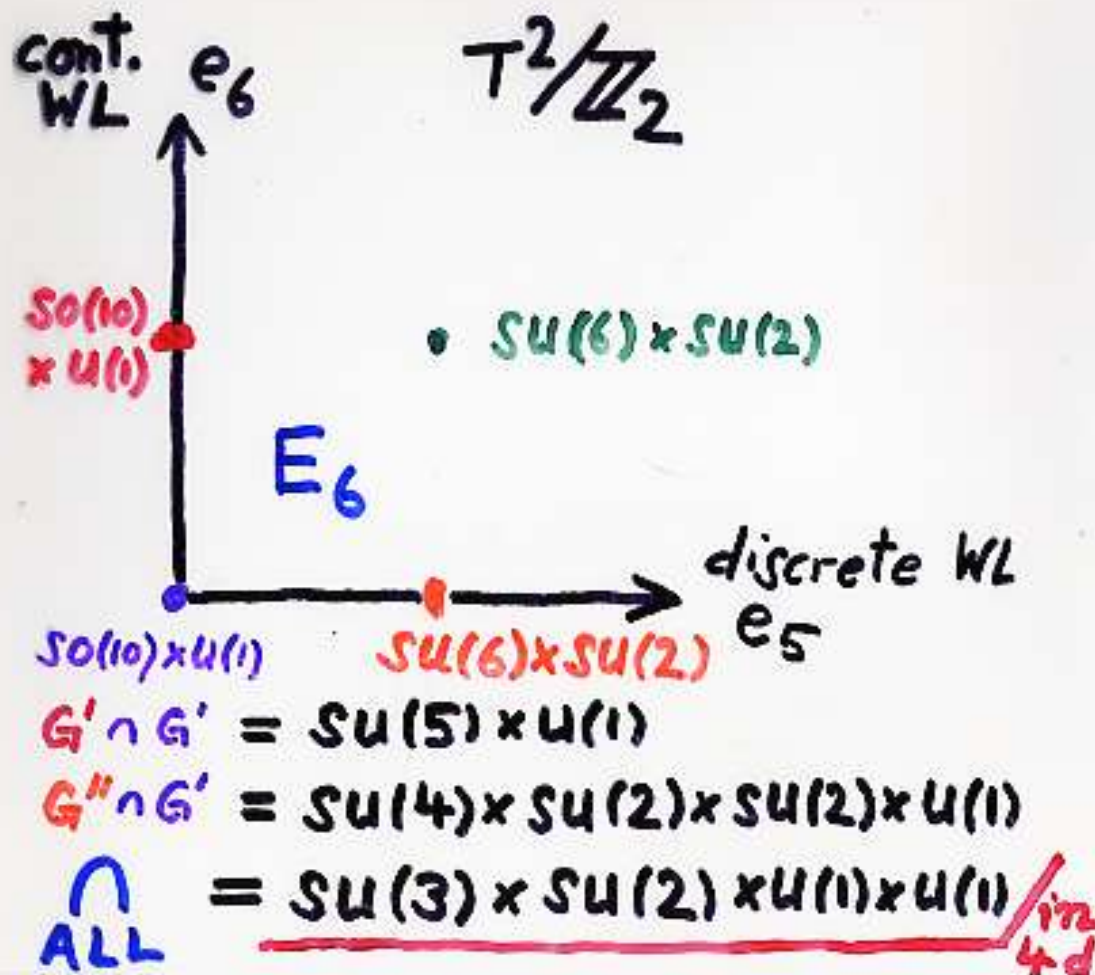 cont. WL e₆
T²/ℤ₂
SO(10) × U(1)
• SU(6) × SU(2)
E₆
discrete WL
e₅
SO(10)×U(1)
SU(6)×SU(2)
G' ∩ G' = SU(5) × U(1)
G'' ∩ G' = SU(4) × SU(2) × SU(2) × U(1)
∩ ALL = SU(3) × SU(2) × U(1) × U(1) / in 4d